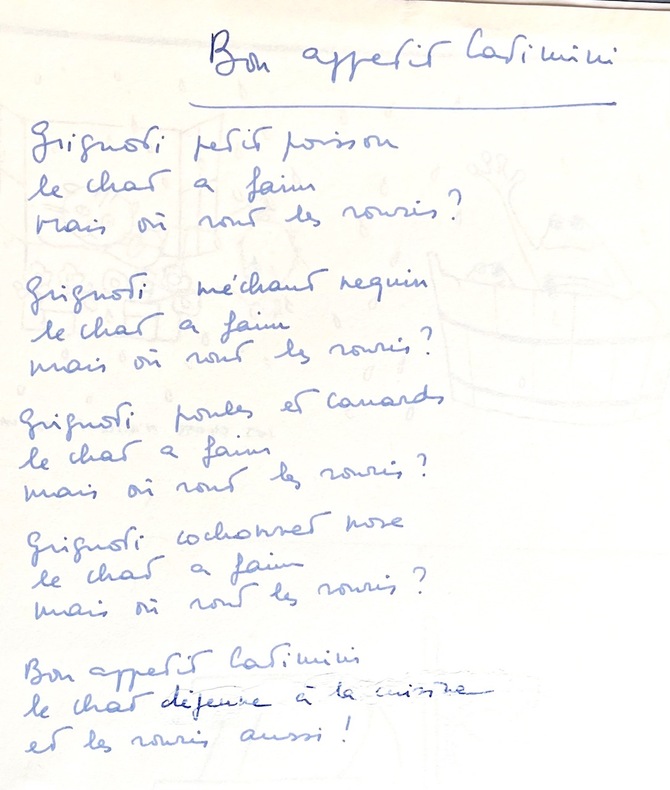 Bon appetit Catimini
Grignoti petit poisson
le chat a faim
mais où sont les souris?
Grignoti méchant requin
le chat a faim
mais où sont les souris?
Grignoti poules et canards
le chat a faim
mais où sont les souris?
Grignoti cochonnet rose
le chat a faim
mais où sont les souris?
Bon appetit Catimini
le chat déjeune à la cuisine
et les souris aussi!